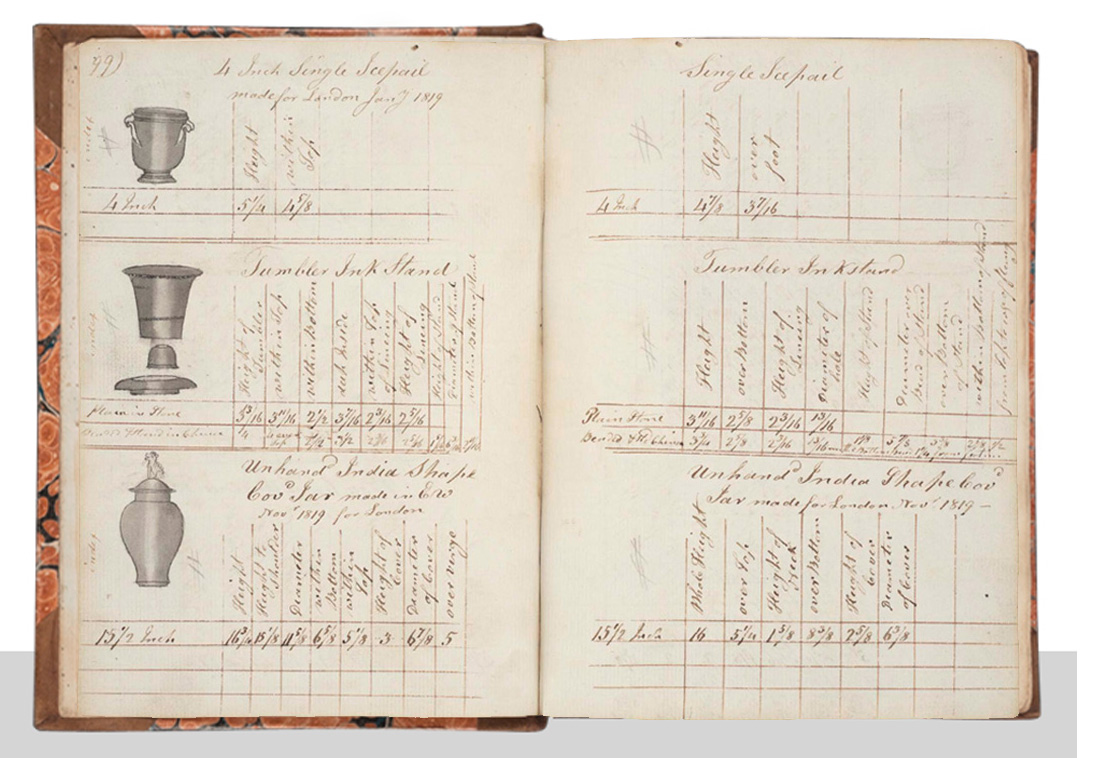 99)
4 Inch Single Icepail
made for London Jany 1819
index
Height
within Top
4 Inch 5 1/4 4 5/8
Tumbler Ink Stand
index
Height of Tumbler
within Top
within Bottom
deep Inside
within Top of
Height of
Height of Stand
Diameter of Stand
within Bottom of Stand
Plain in Stone 5 3/16 3 11/16 2 1/2 3 7/16 2 3/16 2 5/16
Unhand India Shape
Covd Jar made in
Novr 1819 for London
index
Height
Height to Shoulder
Diameter
within Bottom
within Top
Height of Cover
Diameter of Cover
over
15 1/2 Inch 16 3/4 11 5/8 6 5/8 5 1/8 3 6 7/8 5
Single Icepail
Height
over foot
4 Inch 4 7/8 3 7/16
Tumbler Inkstand
Height
over Bottom
Height of
Diameter of hole
Height of Stand
Diameter over Bead of Stand
over Bottom of Stand
within Bottom of Stand
Plain Stone 3 11/16 2 5/8 2 3/16 13/16
Unhand India Shape Covd
Jar made for London Novr 1819 -
Whole Height
over Top
Height of Neck
over Bottom
Height of Cover
Diameter of Cover
15 1/2 Inch 16 5 1/4 1 5/8 8 3/8 2 5/8 6 3/8